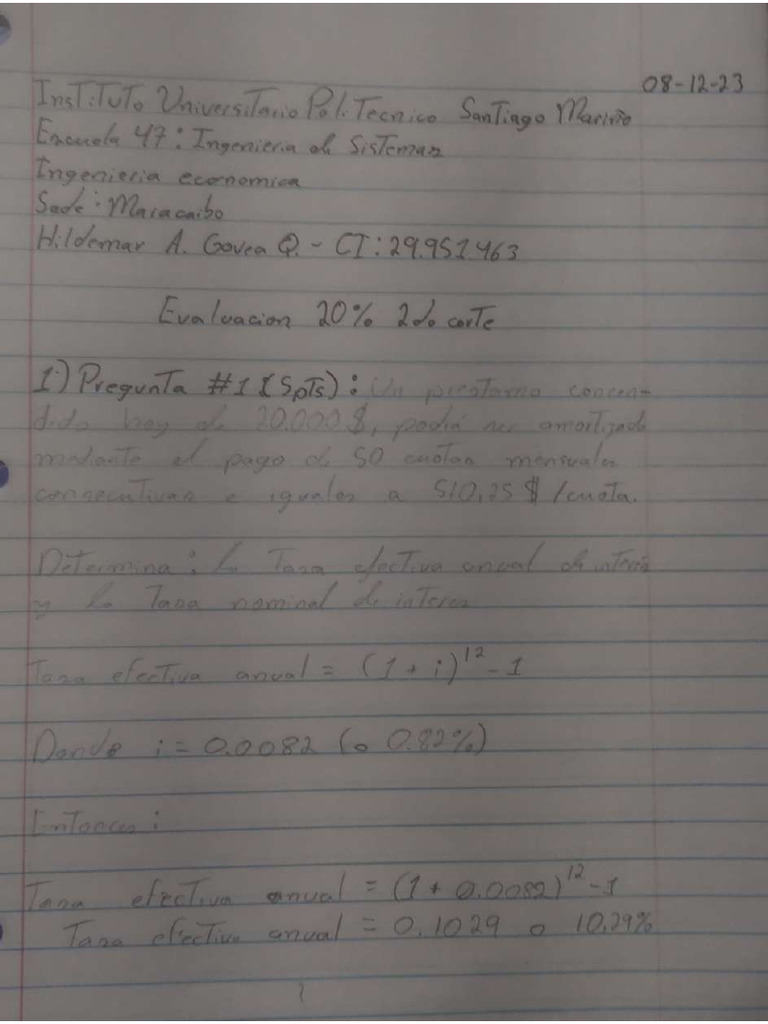 08-12-23
Instituto Universitario Politecnico Santiago Mariño
Escuela 47: Ingenieria de Sistemas
Ingenieria economica
Sede: Maracaibo
Hildemar A. Govea Q. - CI: 29.951.463
Evaluacion 20% 2do corte
1) Pregunta #1 (5pts): Un prestamo concen-
dido hoy de 20.000$, podrá ser amortizado
mediante el pago de 50 cuotas mensuales
consecutivas e iguales a 510,25 $/cuota.
Determina: la Tasa efectiva anual de interes
y la Tasa nominal de interes
Tasa efectiva anual = (1 + i)^12 - 1
Donde i = 0.0082 (o 0.82%)
Entonces:
Tasa efectiva anual = (1 + 0.0082)^12 - 1
Tasa efectiva anual = 0.1029 o 10,29%